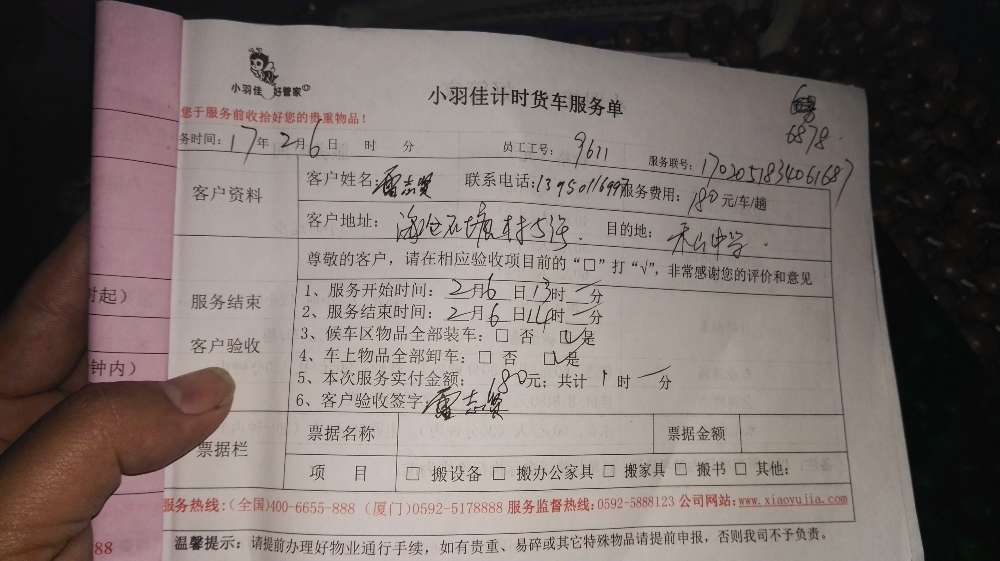 小羽佳 好管家
小羽佳计时货车服务单
您于服务前收拾好您的贵重物品！
6878
务时间：17年2月6日 时 分 员工工号：9611 服务联号：1702051834061687
客户资料
客户姓名：雷志贤 联系电话：13950116997 服务费用：180元/车/趟
客户地址： 目的地：禾山中学
尊敬的客户，请在相应验收项目前的“□”打“√”，非常感谢您的评价和意见
服务结束
客户验收
1、服务开始时间：2月6日13时一分
2、服务结束时间：2月6日14时一分
3、候车区物品全部装车：□ 否 ☑是
4、车上物品全部卸车：□ 否 ☑是
5、本次服务实付金额：180元；共计1时一分
6、客户验收签字：雷志贤
时起）
钟内）
票据栏
票据名称 票据金额
项 目 □ 搬设备 □ 搬办公家具 □ 搬家具 □ 搬书 □ 其他：
服务热线：(全国)400-6655-888 (厦门)0592-5178888 服务监督热线:0592-5888123 公司网站:www.xiaoyujia.com
温馨提示：请提前办理好物业通行手续，如有贵重、易碎或其它特殊物品请提前申报，否则我司不予负责。
88